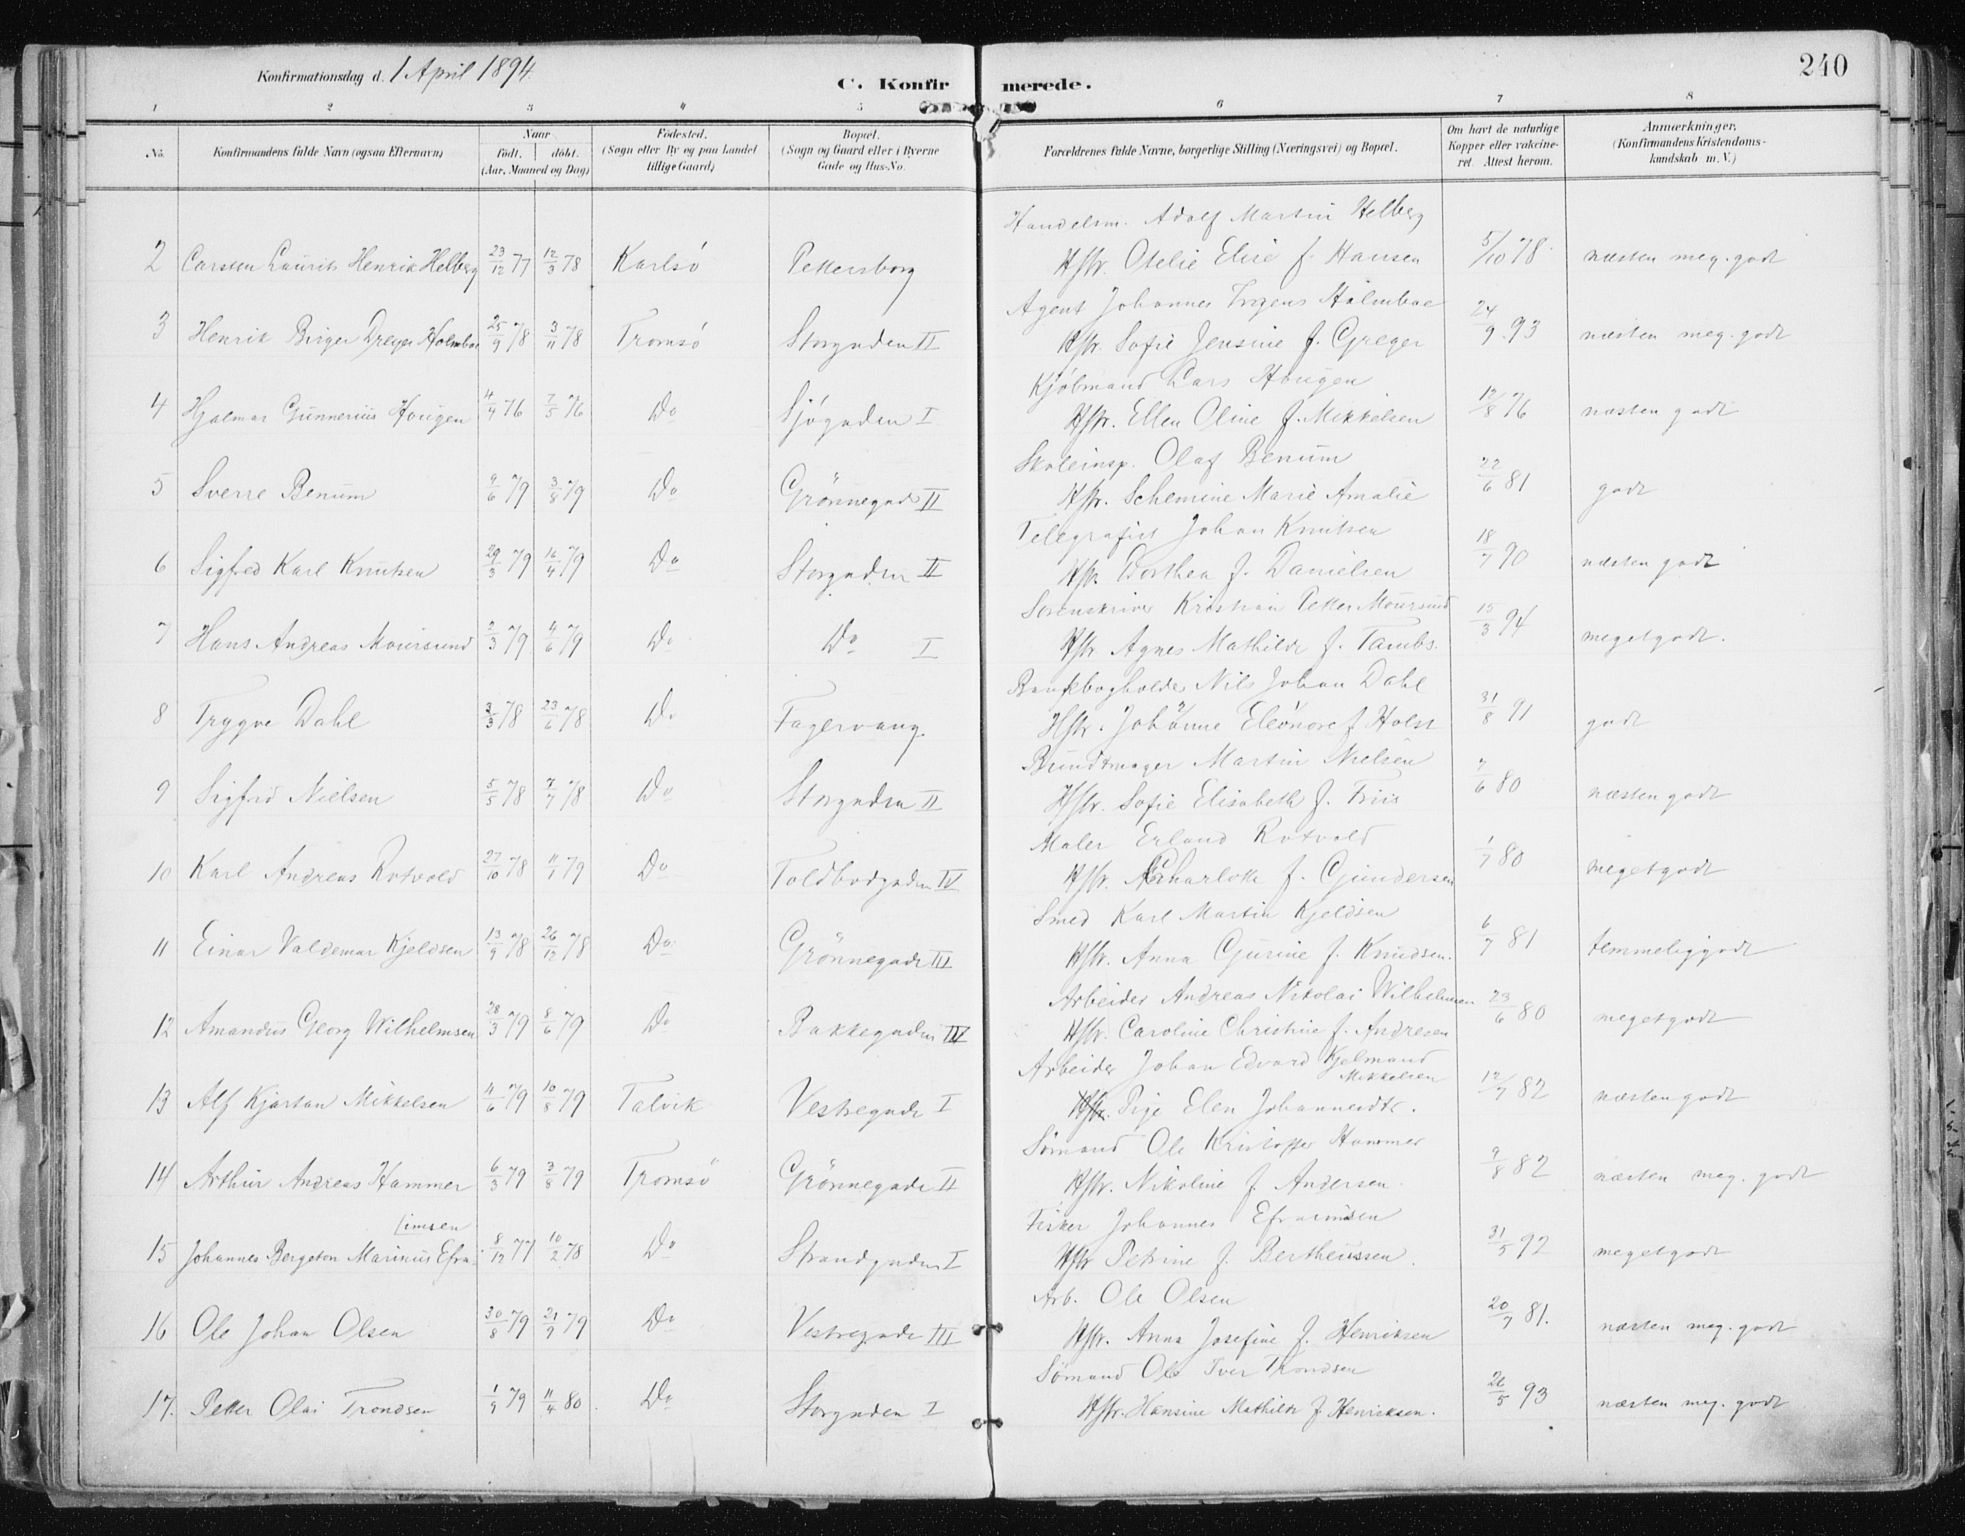 Konfirmationsdag d. 1 April 1894.
C. Konfirmerede.
240
1 2 3 4 5 6 7 8
No. Konfirmandens fulde Navn (ogsaa Efternavn) Naar født. døbt. (Aar, Maaned og Dag) Fødested. (Sogn eller By og paa Landet tillige Gaard) Bopæl. (Sogn og Gaard eller i Byerne Gade og Hus-No. Forældrenes fulde Navne, borgerlige Stilling (Næringsvei) og Bopæl. Om havt de naturlige Kopper eller vakcineret. Attest herom. Anmærkninger. (Konfirmandens Kristendomskundskab m. V.)
Handelsm. Adolf Martin Helberg
2 Carsten Laurits Henrik Helberg 23/12 77 12/3 78 Karlsö Pettersborg Hstr. Otelie Elise f. Hansen 5/10 78 næsten meg. godt
Agent Johannes Holmboe
3 Henrik Birger Dreyer Holmboe 25/9 78 3/11 78 Tromsö Storgaden II Hstr. Sofie Jensine f. Greger 24/9 93 næsten meg. godt
Kjøbmand Lars Hougen
4 Hjalmar Gunnerius Hougen 4/4 76 7/5 76 Do Sjøgaden I Hstr. Ellen Oline f. Mikkelsen 12/8 76 næsten godt
Skoleinsp. Olaf Benum
5 Sverre Benum 9/6 79 3/8 79 Do Grönnegad II Hstr. Schemine Marie Amalie 22/6 81 godt
Telegrafist Johan Knutsen
6 Sigfred Karl Knutsen 29/3 79 16/4 79 Do Storgaden II Hstr. Dorthea f. Danielsen 18/7 90 næsten godt
Sorenskriver Kristian Petter Moursund
7 Hans Andreas Moursund 2/3 79 4/6 79 Do Do I Hstr Agnes Mathilde f. Tambs. 15/3 94 megetgodt.
Bankbogholder Nils Johan Dahl
8 Trygve Dahl 3/3 78 23/6 78 Do Fagervang. Hstr. Johanne Eleonore f Holst 31/8 91 godt
Bundtmager Martin Nielsen
9 Sigfrid Nielsen 5/5 78 7/7 78 Do Storgaden II Hstr. Sofie Elisabeth f. Friis 7/6 80 næsten godt
Maler Erland Rotvold
10 Karl Andreas Rotvold 27/10 78 11/7 79 Do Toldbodgaden IV Hstr. Charlotte f. Gundersen 1/7 80 megetgodt
Smed Karl Martin Kjeldsen
11 Einar Valdemar Kjeldsen 13/9 78 26/12 78 Do Grönnegade III Hstr. Anna Gurine f. Knudsen. 6/7 81 temmeliggodt
Arbeider Andreas Nikolai Wilhelmsen
12 Amandus Georg Wilhelmsen 28/3 79 8/6 79 Do Bakkegaden IV Hstr. Caroline Christine f. Andresen 23/6 80 megetgodt
Arbeider Johan Edvard Kjelmand
Mikkelsen
13 Alf Kjartan Mikkelsen 4/6 79 10/8 79 Talvik Vestregade I Hstr. Pige Elen Johannesdtr. 12/7 82 næstengodt
Sömand Ole Kristoffer Hammer
14 Arthur Andreas Hammer 6/3 79 3/8 79 Tromsö Grönnegade II Hstr. Nikoline f. Andersen. 9/8 82 næsten meg. godt
[imsen Fisker Johannes Efraimsen
15 Johannes Bergeton Marinus Efra- 8/12 77 10/2 78 Do Strandgaden I Hstr Petrine f. Bertheussen. 31/5 92 megetgodt
Arb. Ole Olsen
16 Ole Johan Olsen 30/8 79 21/9 79 Do Vestregade III Hstr. Anna Josefine f. Henriksen 20/7 81. næsten meg. godt
Sömand Ole Iver Trondsen
17. Petter Olai Trondsen 1/9 79 11/4 80 Do Storgaden I Hstr. Hansine Mathilde f Henriksen. 26/5 93 næsten meg. godt